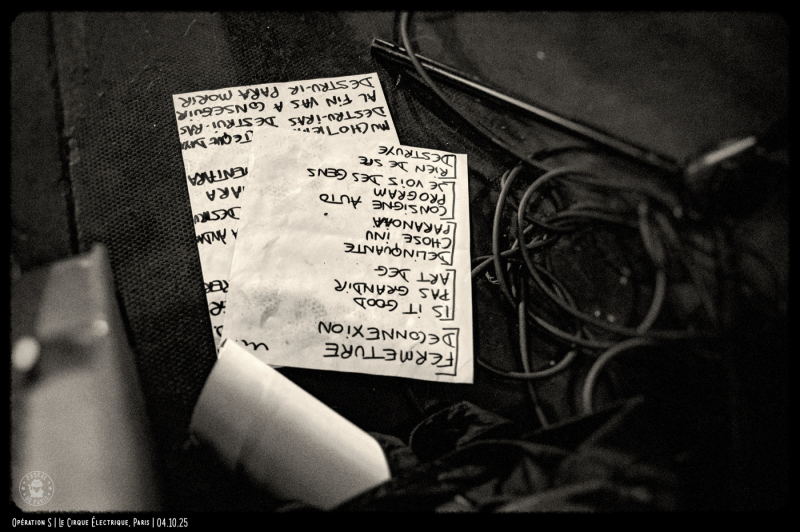 FERMETURE
DECONNEXION
IS IT GOOD
PAS GRANDIR
ART DEG
DELINQUANTE
CHOSE INU
PARANOIA
CONSIGNE AUTO
PROGRAM
JE VOIS DES GENS
RIEN DE SPE
DESTRUYE
MUCHO TIEM
DESTRU-IRAS DESTRUI-RAS
AL FIN VAS A CONSEGUIR
DESTRU-IR PARA MORIR
Opération S | Le Cirque Électrique, Paris | 04.10.25